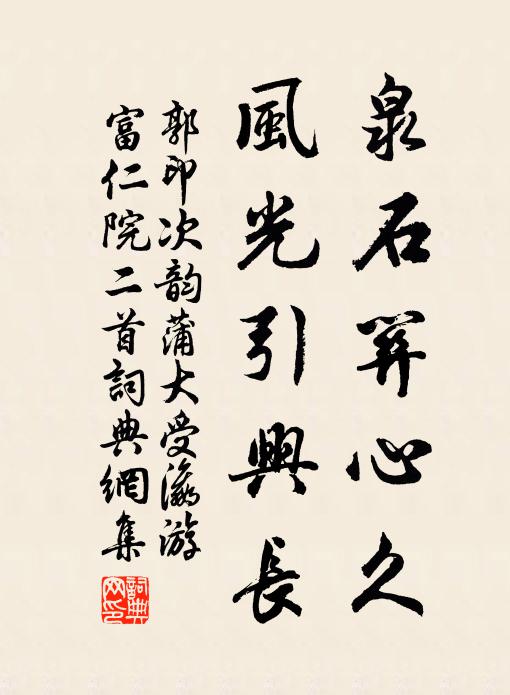 泉石關心久
風光引興長
郭印次韵蒲大受瀛游
富仁院二首詞典網集
詞典網印